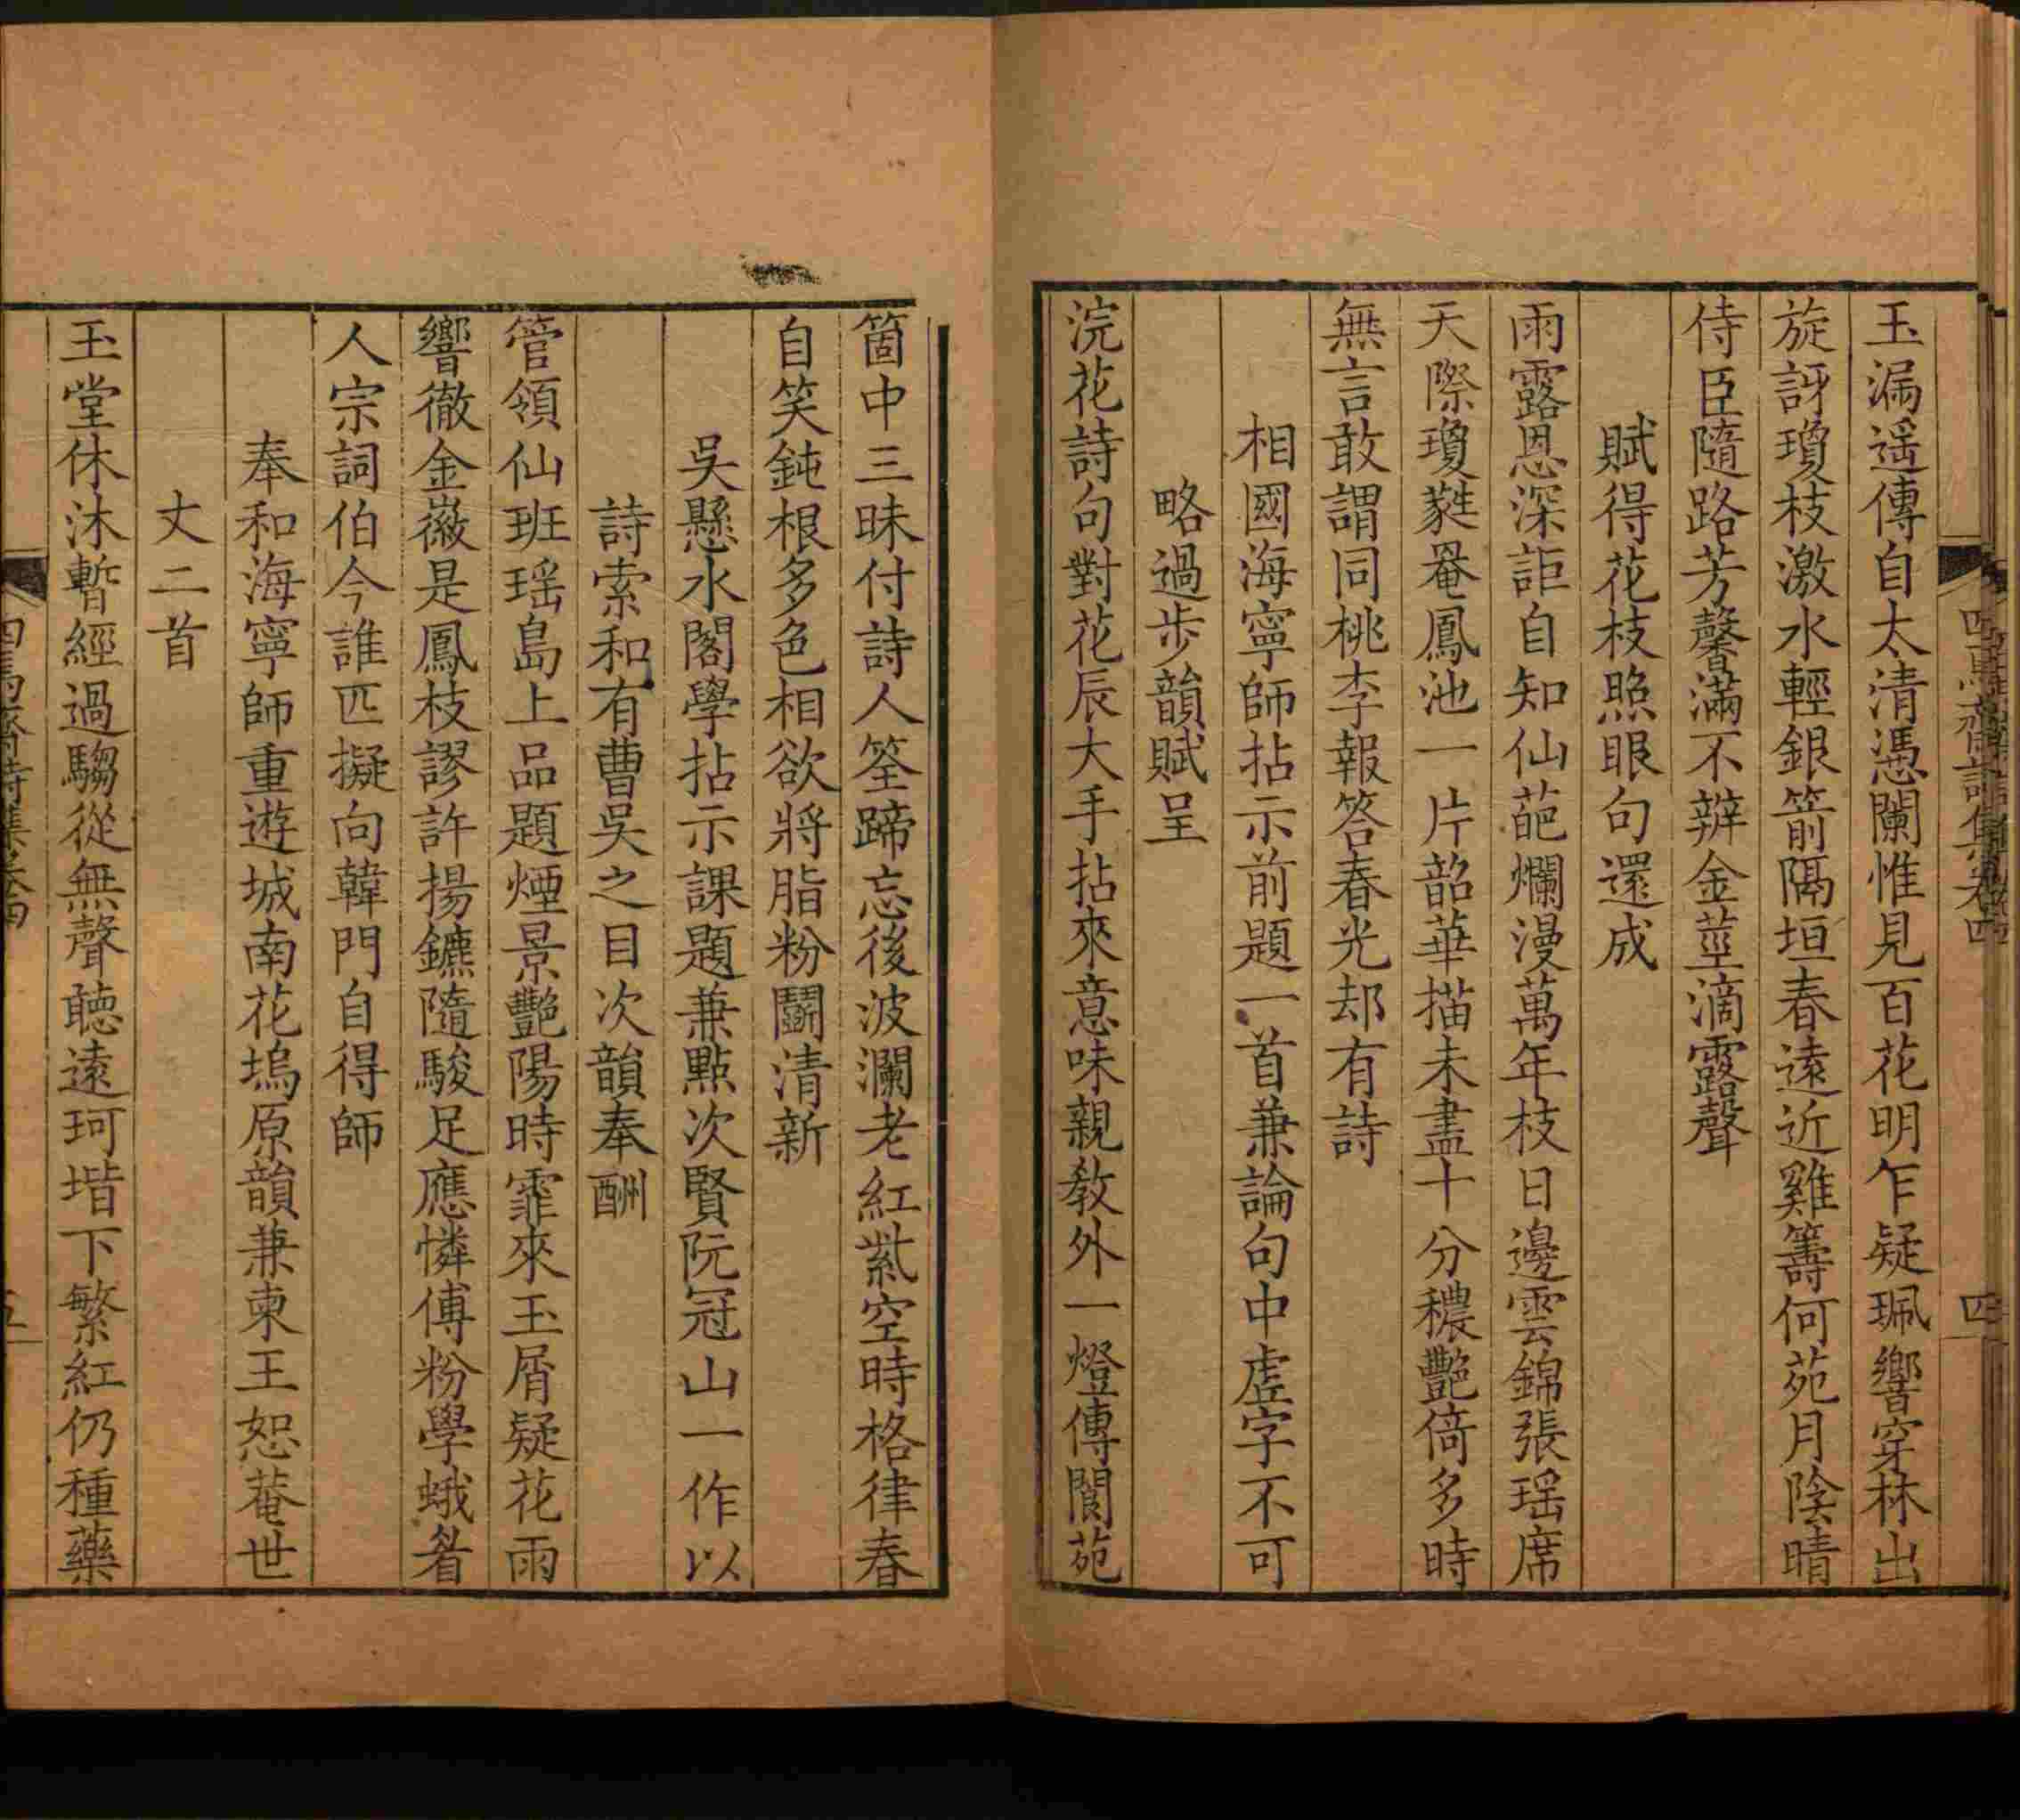 玉漏遥傳自太清憑闌惟見百花明乍疑珮響穿林出
旋訝瓊枝激水輕銀箭隔垣春遠近雞籌何苑月陰晴
侍臣隨路芳馨滿不辨金莖滴露聲
賦得花枝照眼句還成
雨露恩深詎自知仙葩爛漫萬年枝日邊雲錦張瑶席
天際瓊蕤罨鳳池一片韶華描未盡十分穠艷倚多時
無言敢謂同桃李報答春光却有詩
相國海寧師拈示前題一首兼論句中虛字不可
略過步韻賦呈
浣花詩句對花辰大手拈來意味親敎外一燈傳閬苑
箇中三昧付詩人筌蹄忘後波瀾老紅紫空時格律春
自笑鈍根多色相欲將脂粉鬭清新
吳懸水閣學拈示課題兼點次賢阮冠山一作以
詩索和有曹吳之目次韻奉酬
管領仙班瑶島上品題煙景艷陽時霏來玉屑疑花雨
響徹金徽是鳳枝謬許揚鑣隨駿足應憐傅粉學蛾眉
人宗詞伯今誰匹擬向韓門自得師
奉和海寧師重遊城南花塢原韻兼柬王恕菴世
丈二首
玉堂休沐暫經過騶從無聲聽遠珂堦下繁紅仍種藥
四焉齋詩集卷四
四